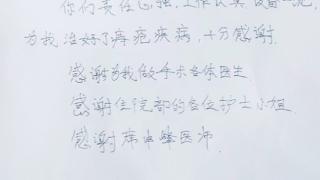 你们责任心强,工作认真,设备一流,
为我治好了痔疮疾病,十分感谢.
感谢为我做手术各体医生
感谢住院部的各位护士小姐.
感谢 医师.